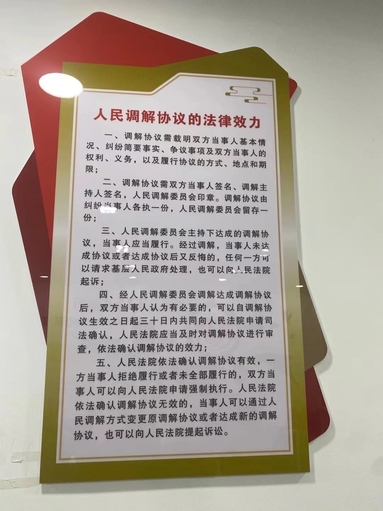 人民调解协议的法律效力
一、调解协议需载明双方当事人基本情
况、纠纷简要事实、争议事项及双方当事人的
权利、义务，以及履行协议的方式、地点和期
限；
二、调解协议需双方当事人签名、调解主
持人签名，人民调解委员会印章。调解协议由
纠纷当事人各执一份，人民调解委员会留存一
份；
三、人民调解委员会主持下达成的调解协
议，当事人应当履行。经过调解，当事人未达
成协议或者达成协议后又反悔的，任何一方可
以请求基层人民政府处理，也可以向人民法院
起诉；
四、经人民调解委员会调解达成调解协议
后，双方当事人认为有必要的，可以自调解协
议生效之日起三十日内共同向人民法院申请司
法确认，人民法院应当及时对调解协议进行审
查，依法确认调解协议的效力；
五、人民法院依法确认调解协议有效，一
方当事人拒绝履行或者未全部履行的，双方当
事人可以向人民法院申请强制执行。人民法院
依法确认调解协议无效的，当事人可以通过人
民调解方式变更原调解协议或者达成新的调解
协议，也可以向人民法院提起诉讼。